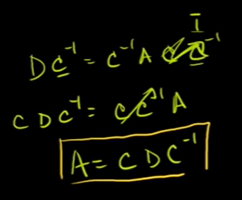 I
D C⁻¹ = C⁻¹ A C C⁻¹
C D C⁻¹ = C C⁻¹ A
A = C D C⁻¹